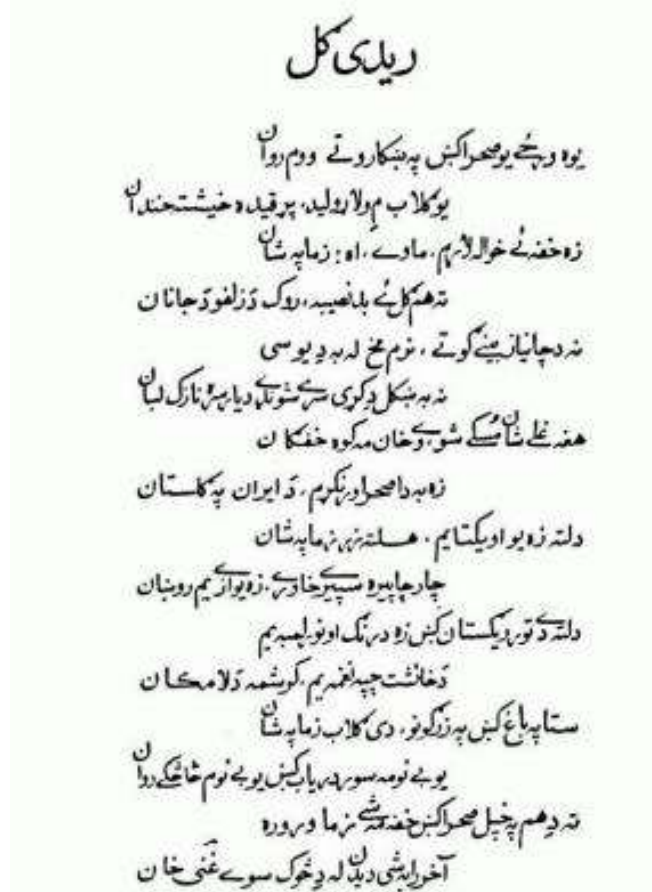 ریدی ګل
یوه ورځے یو صحرا کښ په ښکار وتے ووم روان
یو ګلاب مِ ولاړ ولید، پړقیده خیشته خندان
زه خفه ئے خوا له لاړم، ما وے، اه! زما په شان
ته هم ګل ئے بدنصیبه، روک دَ زلفو دَ جانان
نه د چا نیازبینے ګوتے، نرم مخ له به دِ یوسی
نه به ښکل دِ کړی سرے شونډے دیار، نازک لبان
هغه غلے شان مُسکے شو، وے خان مه کوه خفګان
زه به دا صحرا ورنکړم، دَ ایران په ګلستان
دلته زه یو او یکتا یم، هلته نور زما په شان
چار چاپیره سپیرے خاورے، زه یوازے یم روښان
دلته دے تور ریګستان کښ زه د رنګ او نور لمبه یم
دَ خائست چپه نغمه یم، کرشمه دَ لامکان
ستا په باغ کښ په زرګونو، دی ګلاب زما په شان
یو بے نومه سور دریاب کښ یو بے نوم څاڅکے روان
ته دِ هم په خپل صحرا کښ خفه مه شے زما وروره
آخر رابه شی دیدن له دِ څوک سوے غنی خان